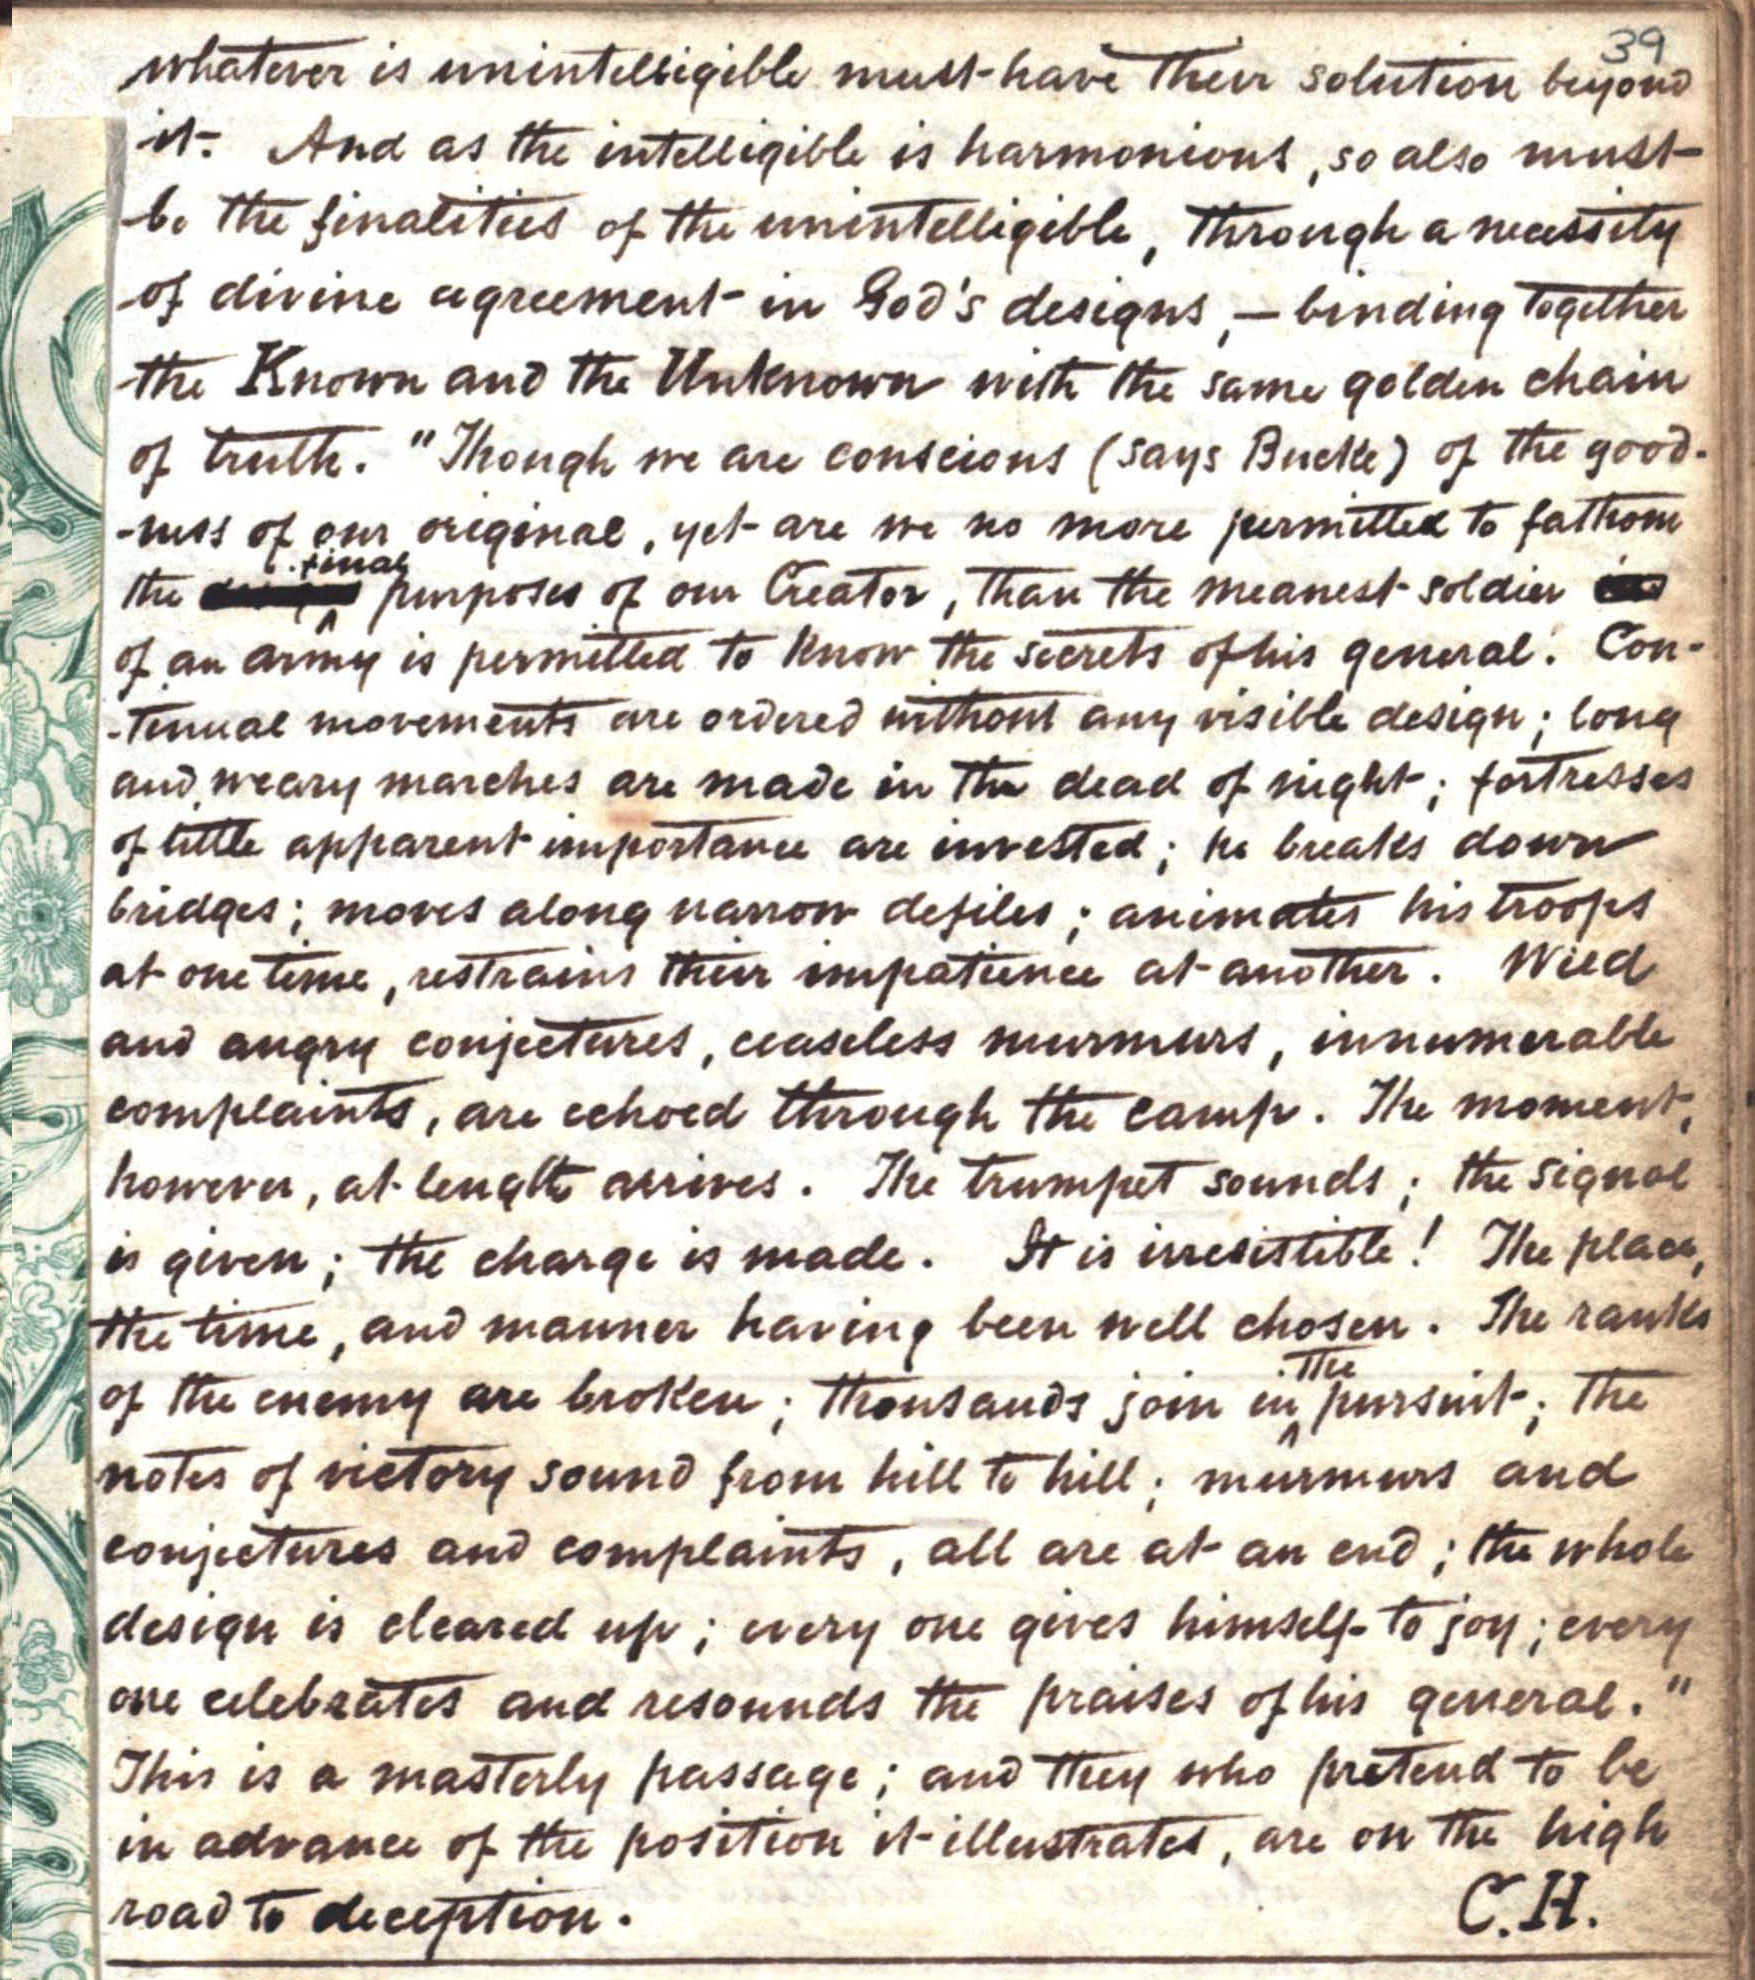 39
whatever is unintelligible must have their solution beyond
it. And as the intelligible is harmonious, so also must
be the finalities of the unintelligible, through a necessity
of divine agreement in God's designs, — binding together
the Known and the Unknown with the same golden chain
of truth. "Though we are conscious (says Bucke) of the good-
-ness of our original, yet are we no more permitted to fathom
the final purposes of our Creator, than the meanest soldier
of an army is permitted to know the secrets of his general. Con-
-tinual movements are ordered without any visible design; long
and weary marches are made in the dead of night; fortresses
of little apparent importance are invested; he breaks down
bridges; moves along narrow defiles; animates his troops
at one time, restrains their impatience at another. Wild
and angry conjectures, ceaseless murmurs, innumerable
complaints, are echoed through the camp. The moment,
however, at length arrives. The trumpet sounds; the signal
is given; the charge is made. It is irresistible! The place,
the time, and manner having been well chosen. The ranks
of the enemy are broken; thousands join in the pursuit; the
notes of victory sound from hill to hill; murmurs and
conjectures and complaints, all are at an end; the whole
design is cleared up; every one gives himself to joy; every
one celebrates and resounds the praises of his general."
This is a masterly passage; and they who pretend to be
in advance of the position it illustrates, are on the high
road to deception. C.H.